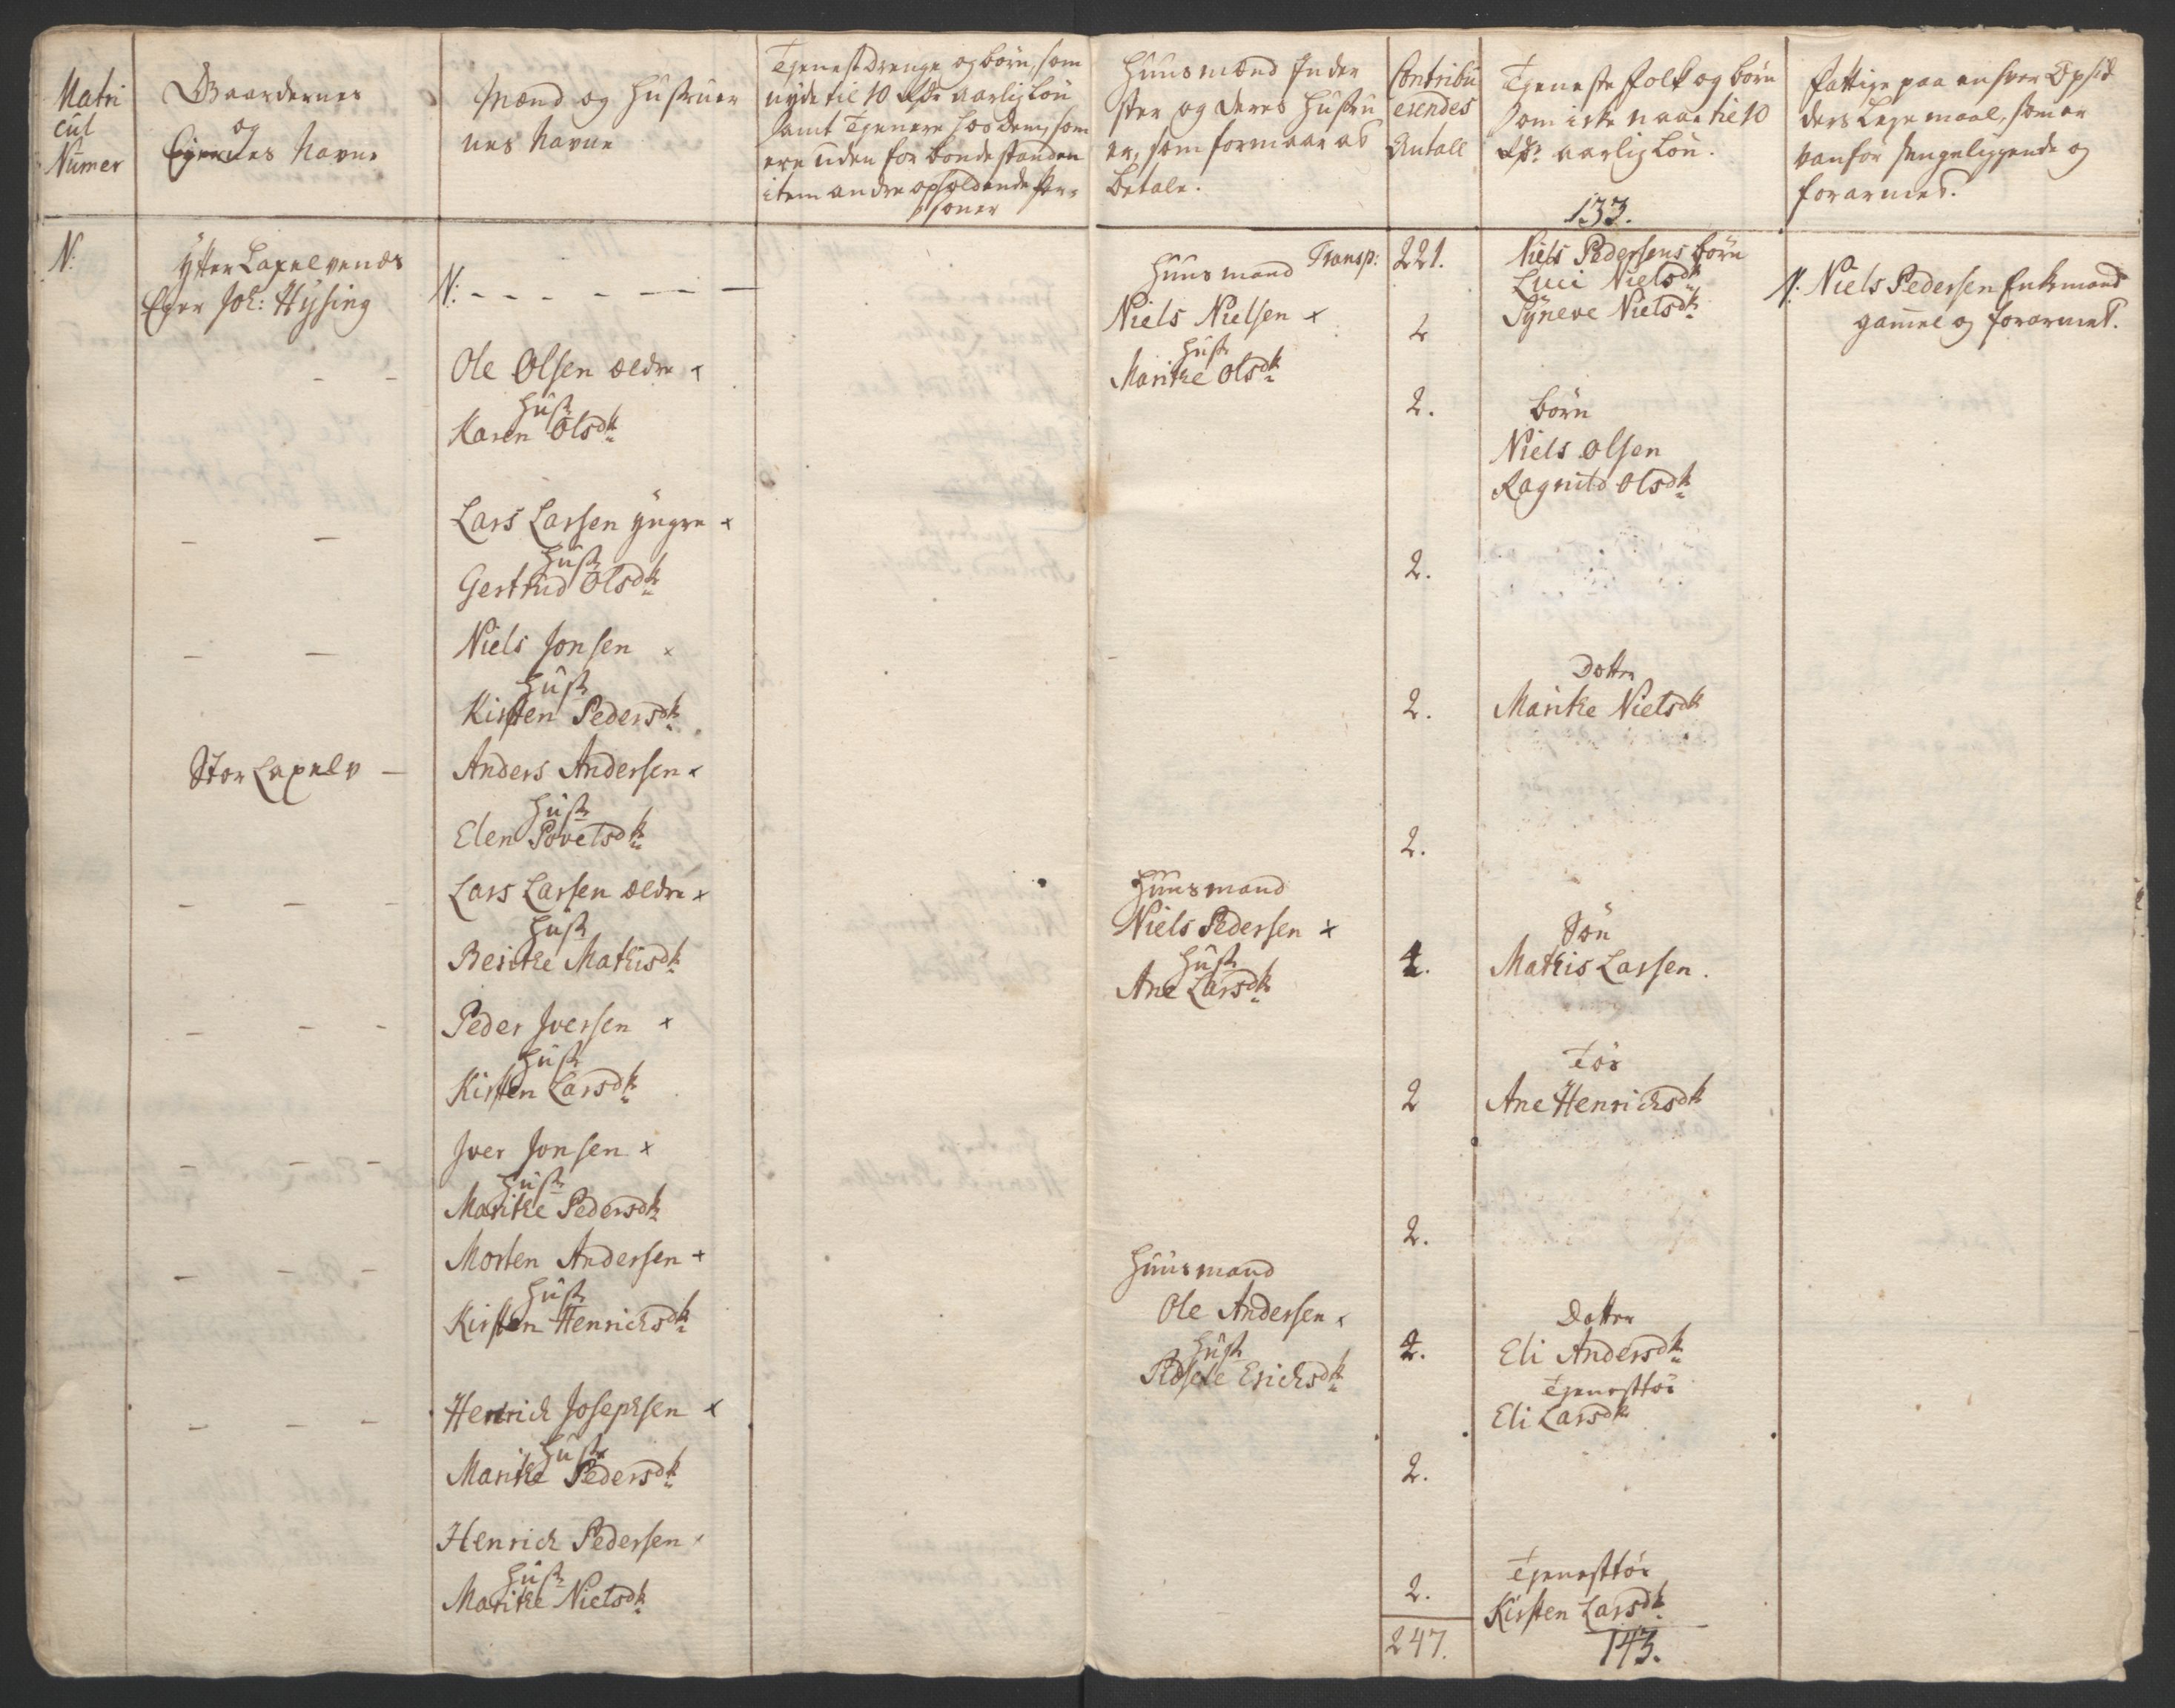 Matri
cul
Numer
Gaardernes
og
Eyernes Navne
Mænd og Hustruer
nes Navne
Tjenest Drenge og børn, som
nyde til 10 Rdr aarlig Løn
samt Tjenere hos dem, som
ere uden for bondestanden
item andre opholdende Per-
soner
Huusmænd Inder
ster og deres Hustru
er, som formaar at
betale.
Contribu
erendes
Antall
Tjeneste folk og børn
som icke naae til 10
Rdr aarlig Løn.
133.
fattige paa en hver Opsid
ders Leje maal, som er
vanfør sengeliggende og
forarmed.
N:
Ytter Laxelvenes
Eyer Joh: Hysing
N: - - - - - - -
Huusmand Transp:
Niels Nielsen x
Hustr
Marithe Olsdtr
221.
2
Niels Pedersens børn
Luci Nielsdtr
Syneve Nielsdtr
N: Niels Pedersen Enkemand
gammel og forarmet.
- -
Ole Olsen ældre x
Hustr
Karen Olsdtr
2.
børn
Niels Olsen
Ragnild Olsdtr
- -
Lars Larsen yngre x
Hustr
Gertrud Olsdtr
2.
- -
Niels Jonsen x
Hustr
Kirsten Pedersdtr
2.
Dotter
Maritke Nielsdtr
Stor Laxelv -
Anders Andersen x
Hustr
Elen Povelsdtr
2.
- - -
Lars Larsen ældre x
Hustr
Beritke Mathisdtr
Huusmand
Niels Pedersen x
Hustr
Ane Larsdtr
4.
Søn
Mathis Larsen.
- - -
Peder Iversen x
Hustr
Kirsten Larsdtr
2
Tøs
Ane Henrichsdtr
- - -
Iver Jonsen x
Hustr
Maritke Pedersdtr
2.
- - -
Morten Andersen x
Hustr
Kirsten Henrichsdtr
Huusmand
Ole Andersen x
Hustr
Sidsele Erichsdtr
4.
Dotter
Eli Andersdtr
Tjenesttøs
Eli Larsdtr
- - -
Henrich Josephsen x
Hustr
Maritke Pedersdtr
2.
Henrich Pedersen x
Hustr
Maritke Nielsdtr
2.
Tjenesttøs
Kirsten Larsdtr
247.
143.